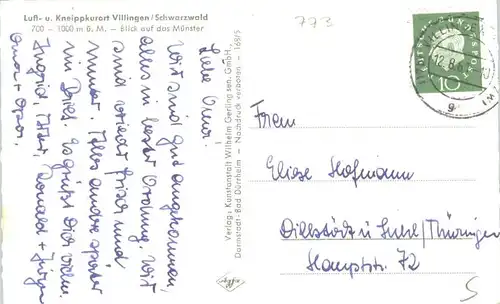 Luft- u. Kneippkurort Villingen/Schwarzwald
700 - 1000 m ü. M. – Blick auf das Münster
773
Liebe Oma!
Wir sind gut angekommen,
alles in bester Ordnung. Wir
sind wieder frisch und
munter. Alles andere später
im Brief. Es grüßt Dich vielm.
Ingrid, Peter, Ronald + Jürgen
Oma + Opa.
Verlag: Kunstanstalt Wilhelm Gerling sen. GmbH.,
Darmstadt-Bad Dürrheim – Nachdruck verboten – 169/5
10
Frau
Elise Hofmann
Dillstädt ü. Suhl/Thüringen
Hauptstr. 72